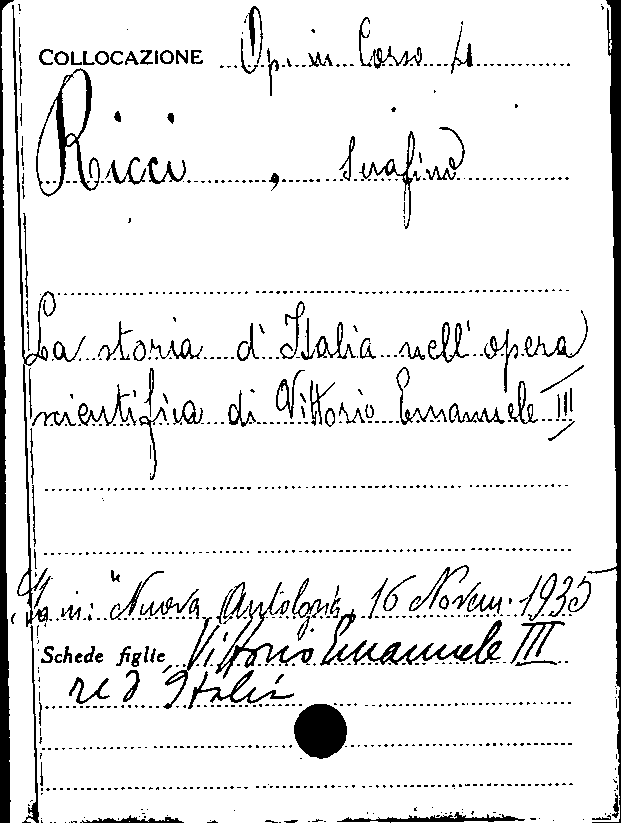 COLLOCAZIONE Op. in Corso 41
Ricci, Serafino
La storia d'Italia nell'opera
scientifica di Vittorio Emanuele III
in: "Nuova Antologia, 16 Novem. 1935
Schede figlie Vittorio Emanuele III
re d'Italia